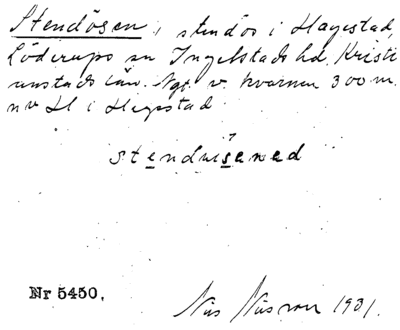 Stendösen, stendös i Hagestad,
Löderups sn Ingelstads hd Kristi
anstads län. Ngt v. kvarnen 300 m.
nv H i Hagestad
Nr 5450.
Nils Nilsson 1931.